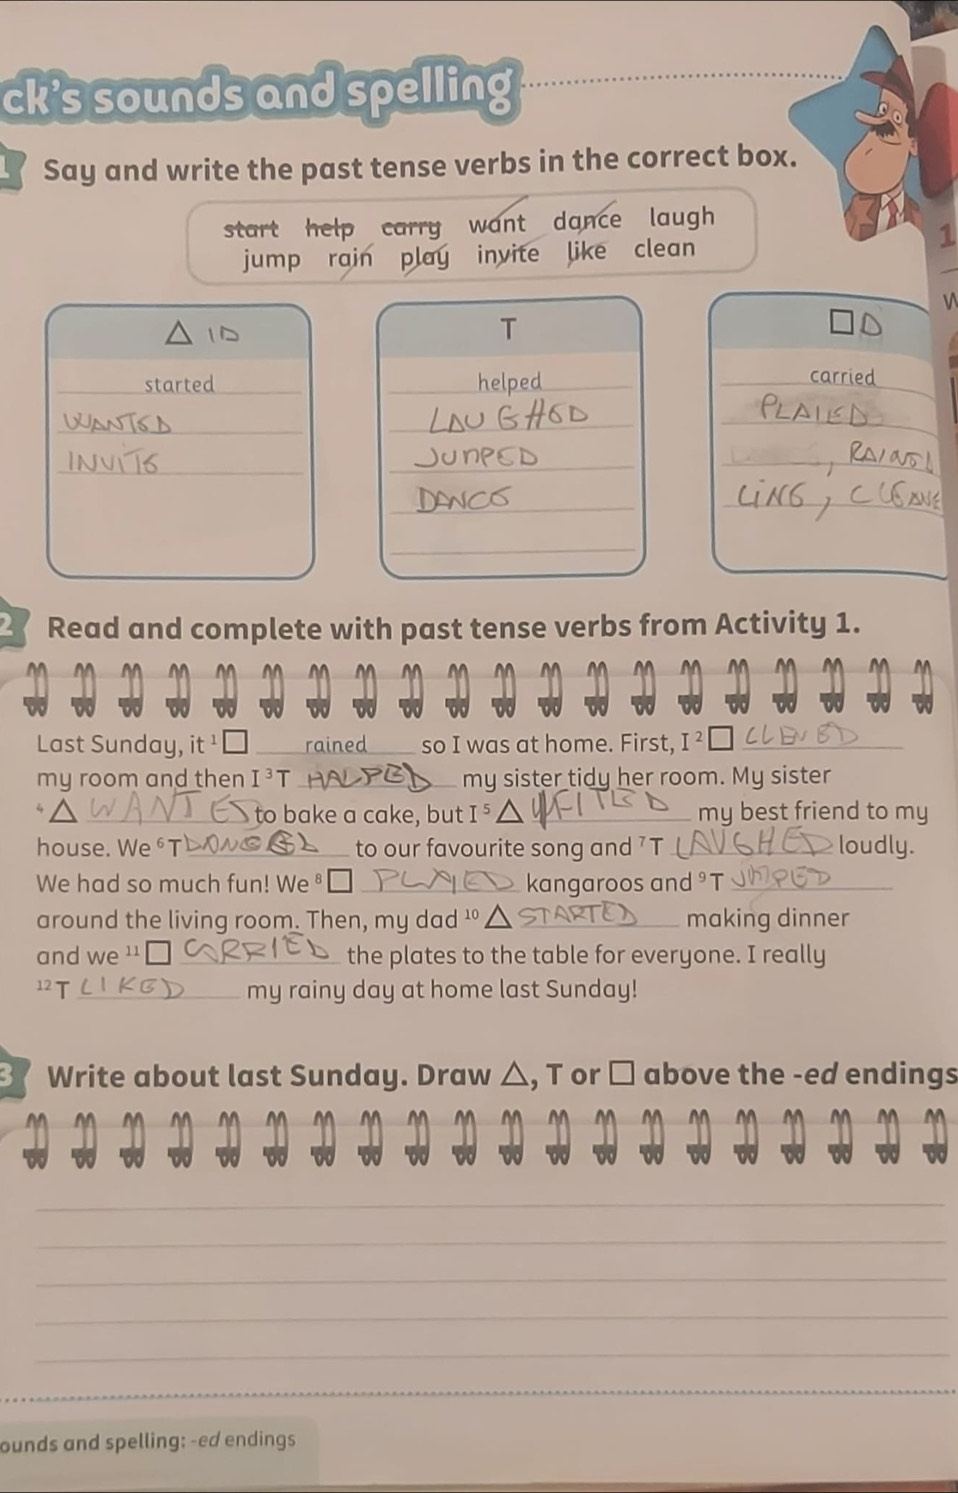 ck's sounds and spelling
1 Say and write the past tense verbs in the correct box.
start help carry want dance laugh
jump rain play invite like clean
△ ID
started
WANTED
INVITE
T
helped
LAUGHED
JUMPED
DANCE
□ D
carried
PLAIED
, RAINED
LING, CLEANE
2 Read and complete with past tense verbs from Activity 1.
Last Sunday, it ¹□ rained so I was at home. First, I ²□ CLENED
my room and then I ³T HALPED my sister tidy her room. My sister
⁴△ WANTED to bake a cake, but I ⁵△ my best friend to my
house. We ⁶T to our favourite song and ⁷T LAUGHED loudly.
We had so much fun! We ⁸□ PLAYED kangaroos and ⁹T JMPED
around the living room. Then, my dad ¹⁰△ STARTED making dinner
and we ¹¹□ CARRIED the plates to the table for everyone. I really
¹²T LIKED my rainy day at home last Sunday!
3 Write about last Sunday. Draw △, T or □ above the -ed endings
ounds and spelling: -ed endings
1